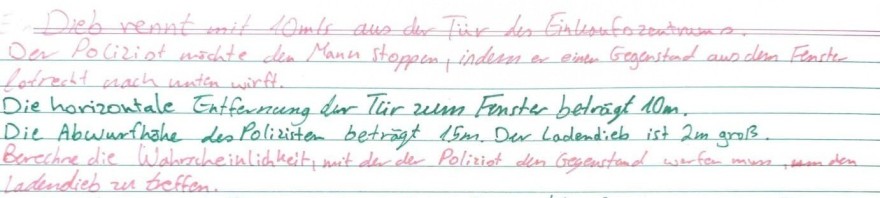 Dieb rennt mit 10m/s aus der Tür des Einkaufszentrums.
Der Polizist möchte den Mann stoppen, indem er einen Gegenstand aus dem Fenster
lotrecht nach unten wirft.
Die horizontale Entfernung der Tür zum Fenster beträgt 10m.
Die Abwurfhöhe des Polizisten beträgt 15m. Der Ladendieb ist 2m groß.
Berechne die Wahrscheinlichkeit, mit der der Polizist den Gegenstand werfen muss, um den
Ladendieb zu treffen.